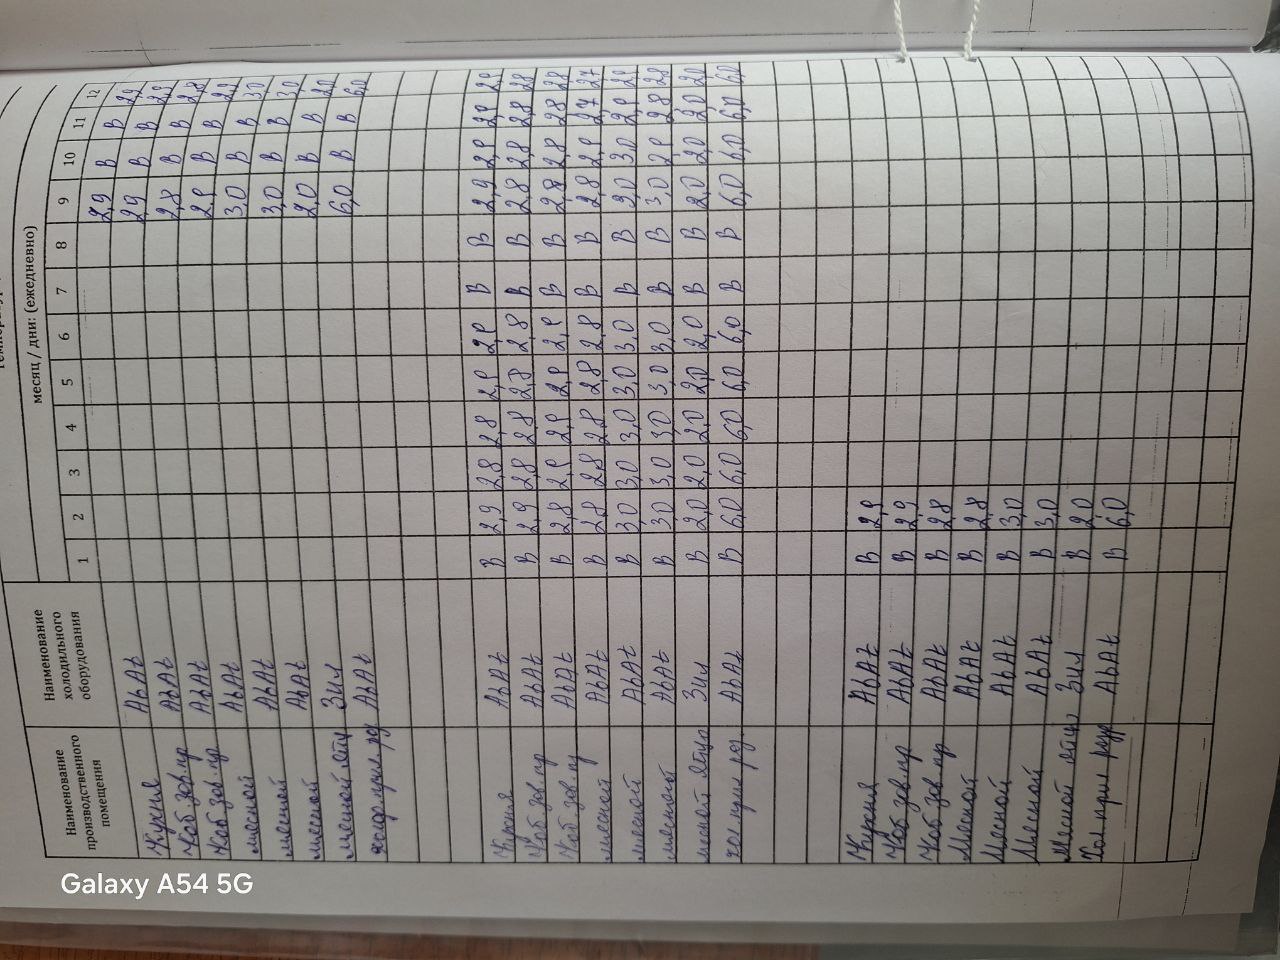 месяц / дни: (ежедневно)
Наименование производственного помещения | Наименование холодильного оборудования | 1 | 2 | 3 | 4 | 5 | 6 | 7 | 8 | 9 | 10 | 11 | 12
Кухня АБАt 2,9 В В 2,9
Каб зав.пр АБАt 2,9 В В 2,9
Каб зав.пр АБАt 2,8 В В 2,8
мясной АБАt 2,9 В В 2,9
мясной АБАt 3,0 В В 3,0
мясной АБАt 3,0 В В 3,0
Мясной яйц Зил 2,0 В В 2,0
АБАt 6,0 В В 6,0
Кухня АБАt В 2,9 2,8 2,8 2,9 2,9 В В 2,9 2,9 2,9 2,9
Каб зав.пр АБАt В 2,9 2,8 2,8 2,8 2,8 В В 2,8 2,8 2,8 2,8
Каб зав.пр АБАt В 2,8 2,9 2,9 2,9 2,9 В В 2,8 2,8 2,8 2,8
мясной АБАt В 2,8 2,8 2,8 2,8 2,8 В В 2,8 2,9 2,7 2,7
мясной АБАt В 3,0 3,0 3,0 3,0 3,0 В В 3,0 2,9 2,9
мясной АБАt В 3,0 3,0 3,0 3,0 3,0 В В 3,0 2,9 2,8 2,8
мясной яйцо Зил В 2,0 2,0 2,0 2,0 2,0 В В 2,0 2,0 2,0 2,0
хол прил АБАt В 6,0 6,0 6,0 6,0 6,0 В В 6,0 6,0 6,0 6,0
Кухня АБАt В 2,9
Каб зав.пр АБАt В 2,9
Каб зав.пр АБАt В 2,8
Мясной АБАt В 2,8
Мясной АБАt В 3,0
Мясной АБАt В 3,0
Мясной яйцо Зил В 2,0
Хол прил АБАt В 6,0
Galaxy A54 5G